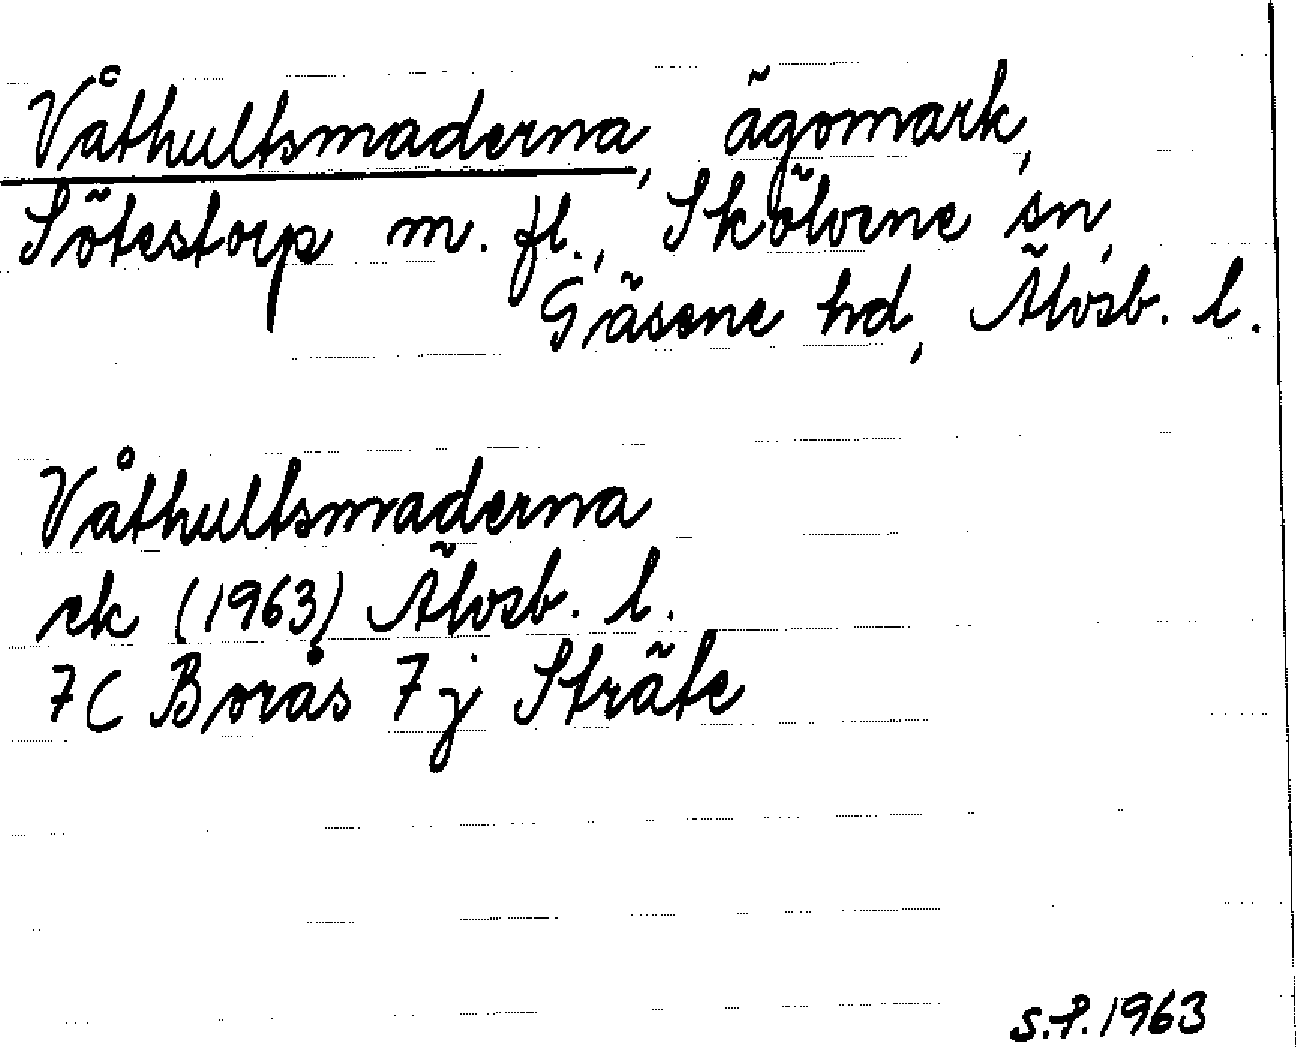 Våthultsmaderna, ägomark,
Sötestorp m. fl., Skölvene sn,
Gäsene hd, Älvsb. l.
Våthultsmaderna
ek (1963) Älvsb. l.
7C Borås 7j Sträte
S.F. 1963